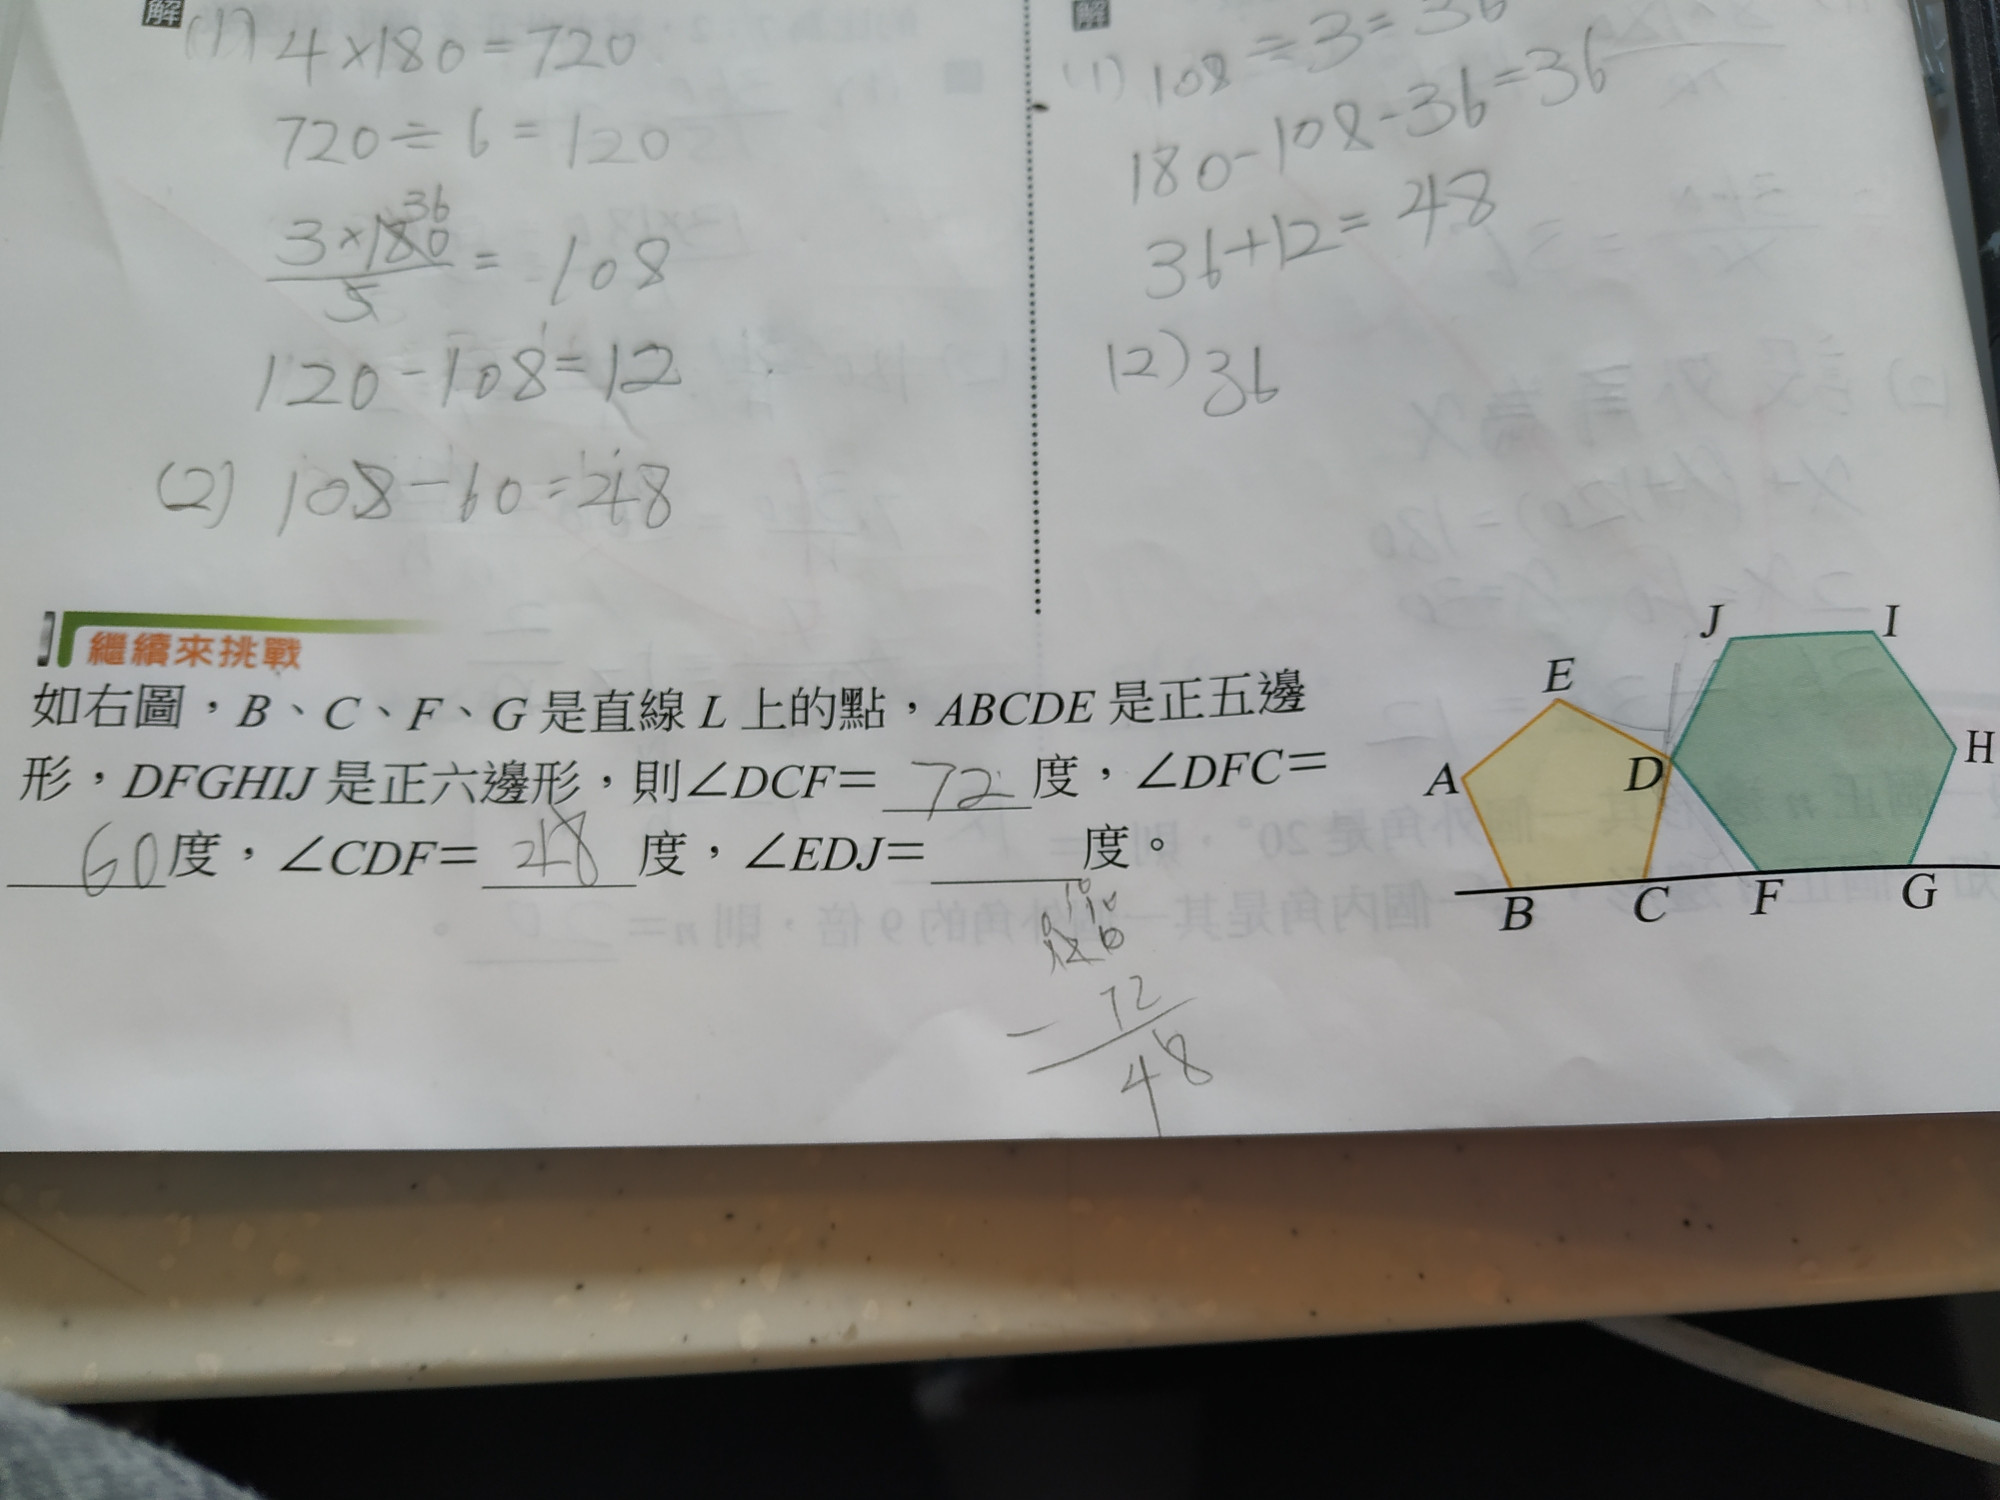 解
(1) 4×180=720
720÷6=120
36
3×180
5
= 108
120-108=12
(2) 108-60=48
解
(1) 108÷3=36
180-108-36=36
36+12=48
(2) 36
繼續來挑戰
如右圖,B、C、F、G是直線L上的點,ABCDE是正五邊
形,DFGHIJ是正六邊形,則∠DCF= 72 度,∠DFC=
60 度,∠CDF= 48 度,∠EDJ= 度。
J I
E
A D H
B C F G
- 72
48